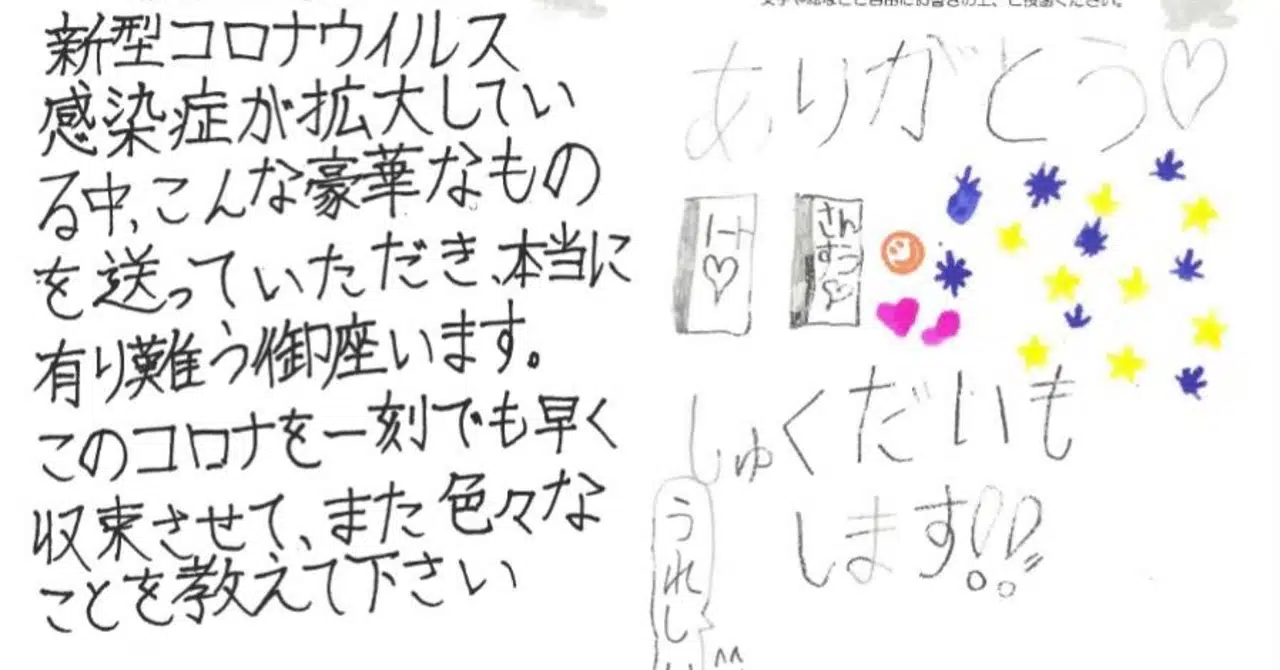 新型コロナウイルス
感染症が拡大してい
る中、こんな豪華なもの
を送っていただき、本当に
有り難う御座います。
このコロナを一刻でも早く
収束させて、また色々な
ことを教えて下さい
ありがとう♡
ノート♡
さんすう♡
しゅくだいも
します!!
うれしい